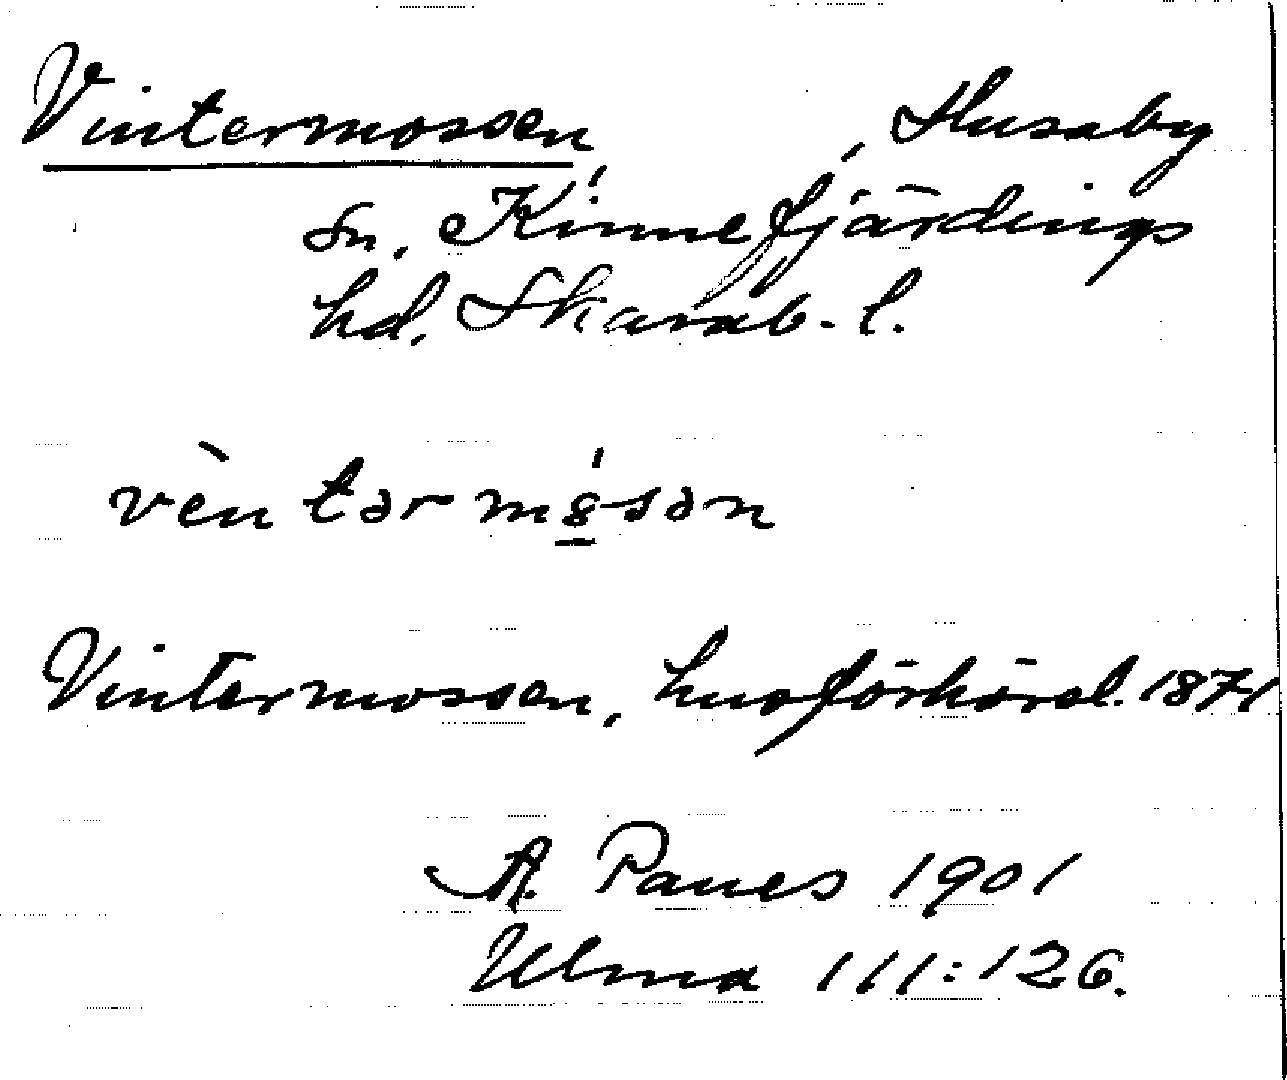 Vintermossen, Husaby
sn, Kinnefjärdings
hd, Skarab. l.
vèntərmósən
Vintermossen, husförhörsl. 1871
A. Panes 1901
Ulma 111:126.